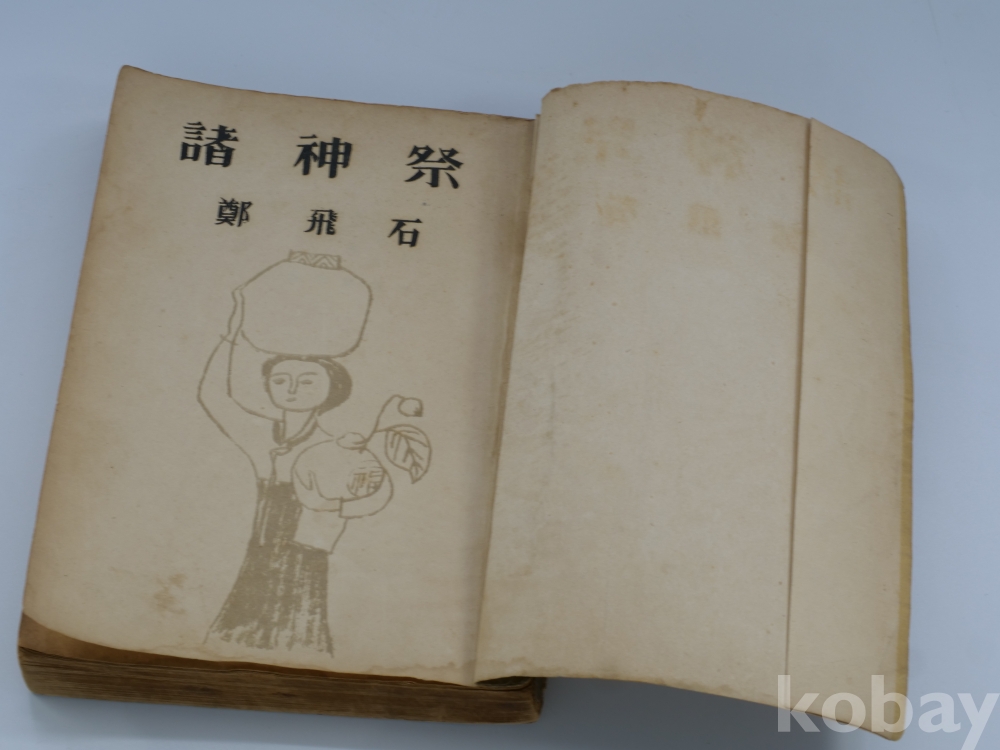 諸神祭
鄭飛石
kobay